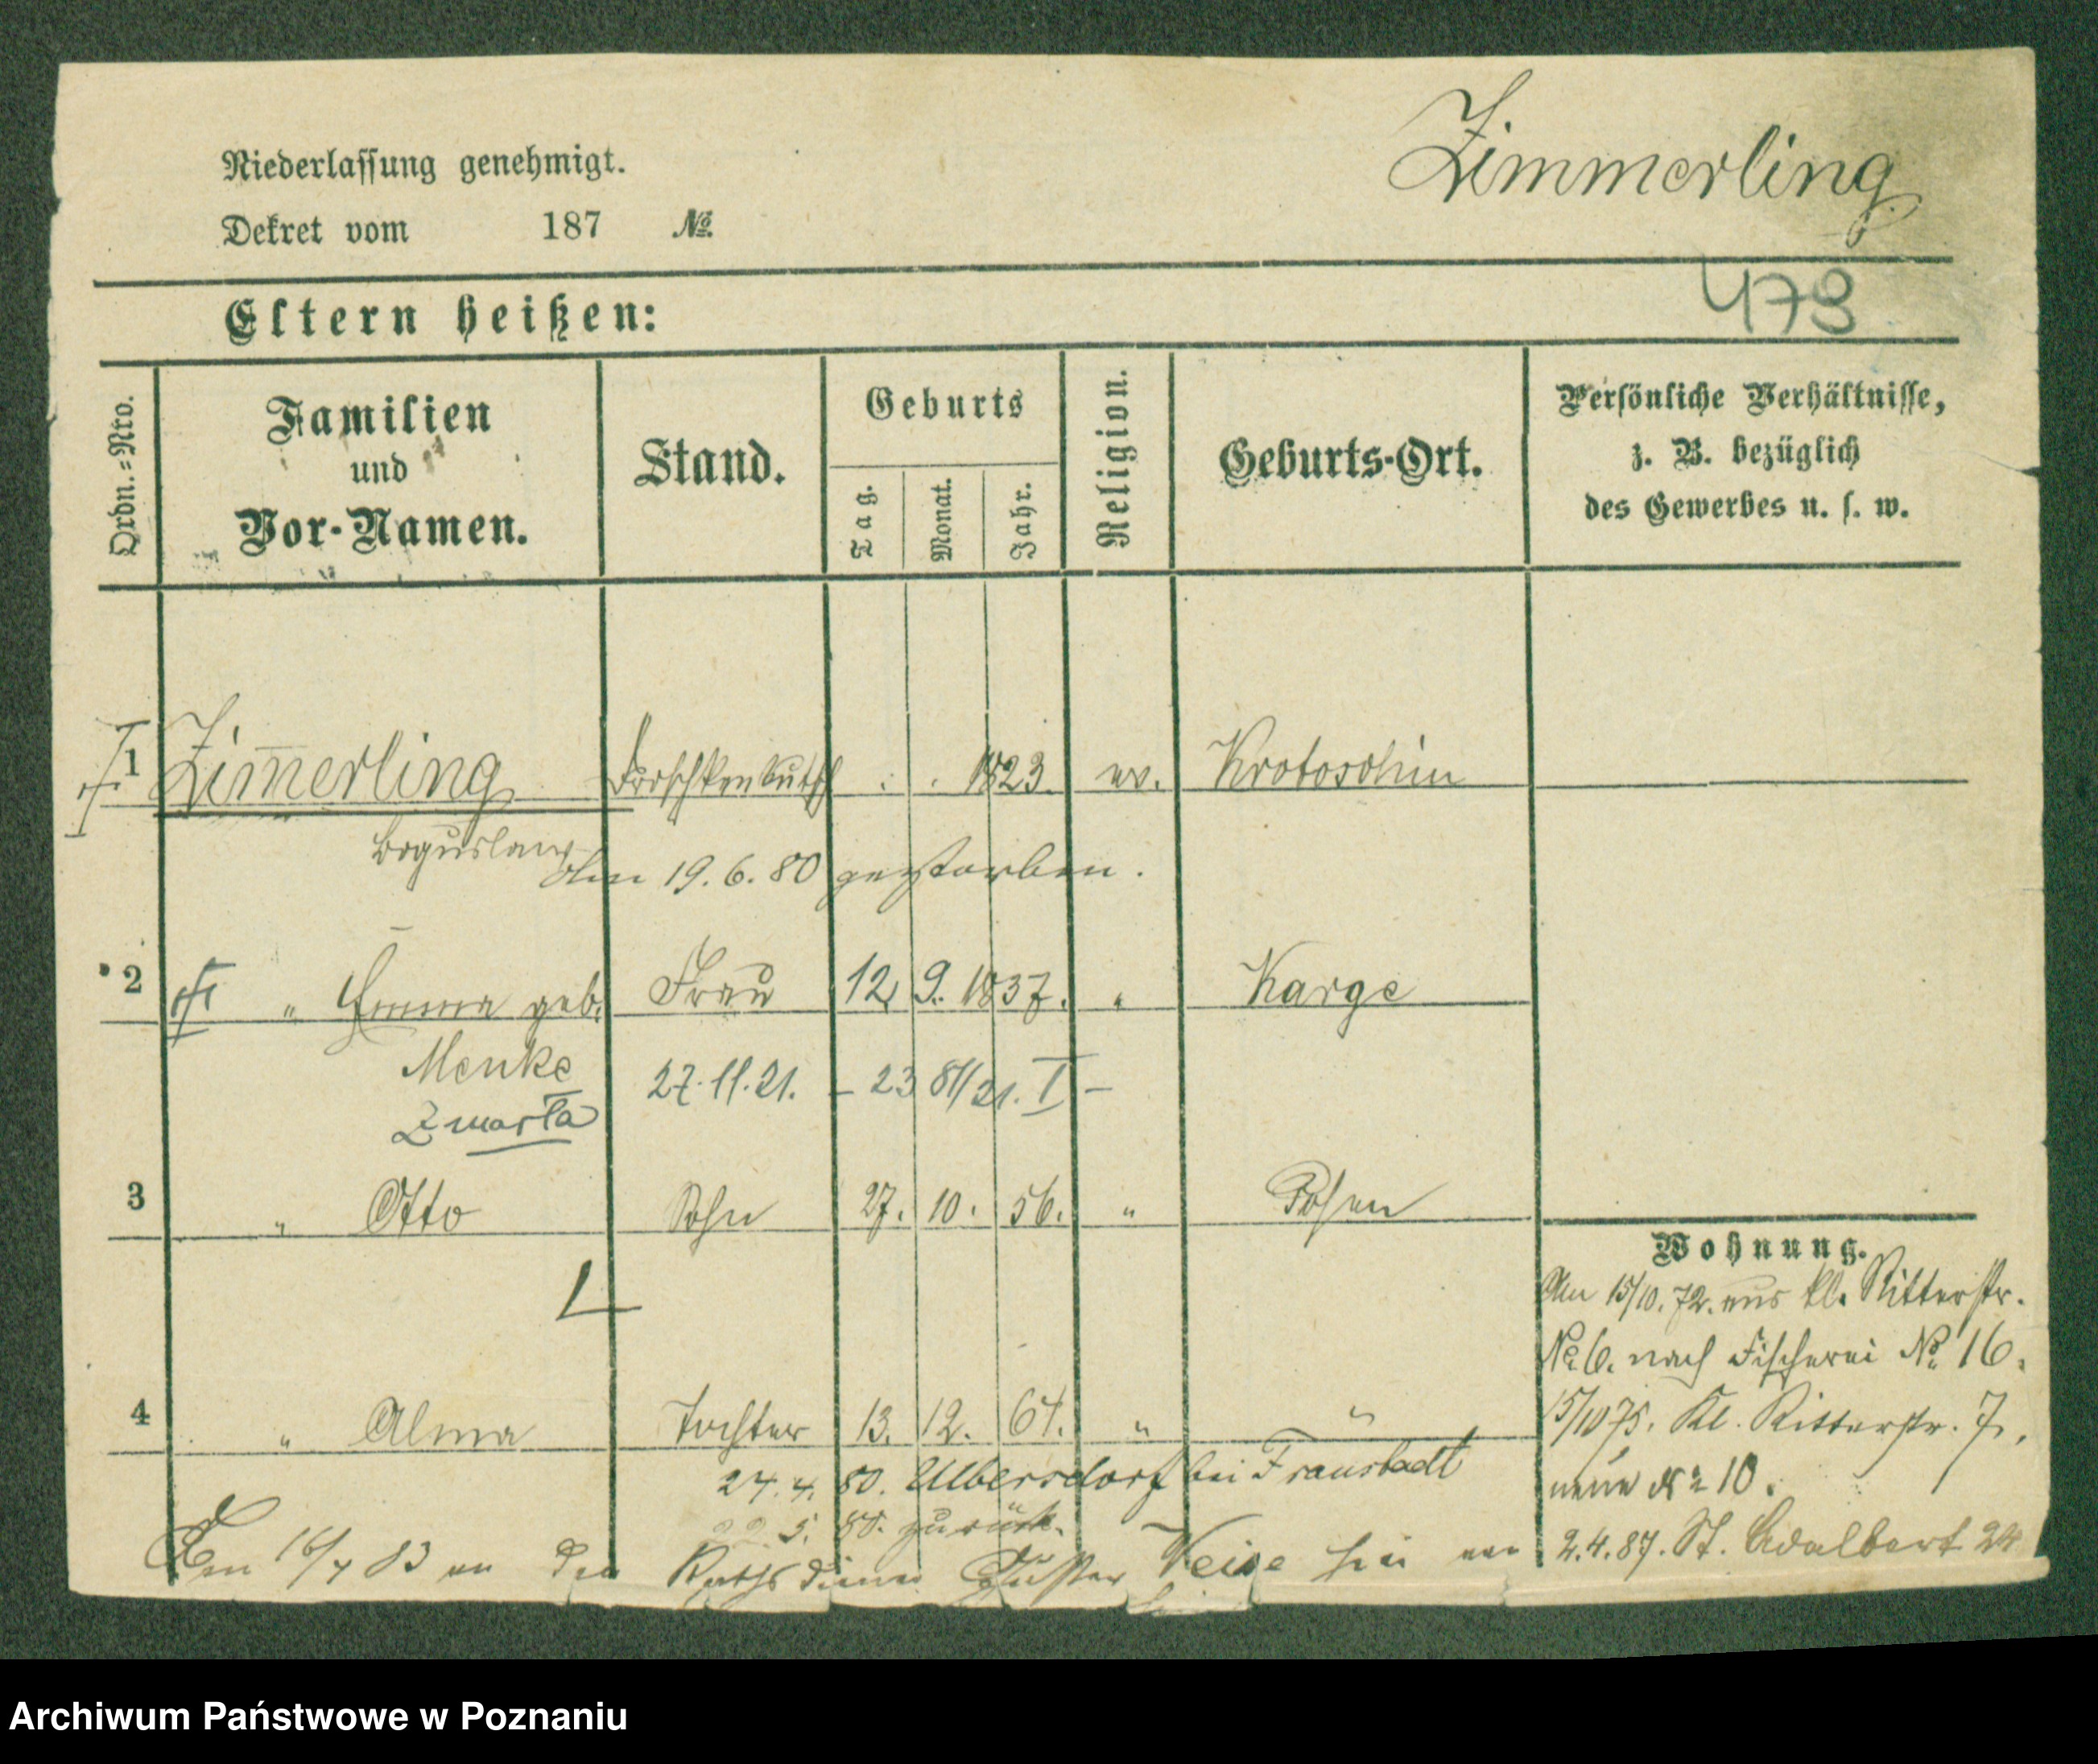 Zimmerling
Niederlassung genehmigt.
Dekret vom 187 №
Eltern heißen:
479
Ordn.=Nro.
Familien
und
Vor-Namen.
Stand.
Geburts
Tag.
Monat.
Jahr.
Religion.
Geburts-Ort.
Persönliche Verhältnisse,
z. B. bezüglich
des Gewerbes u. s. w.
1 Zimmerling 1823. ev. Krotoschin
Boguslaw
Am 19.6.80 gestorben.
2 " Emma geb. Frau 12. 9. 1837. " Karge
Menke 27.11.21.
Zmarła
3 " Otto Sohn 27. 10. 56. " Posen
4 " Alma Tochter 13. 12. 61. " "
24.4.80. Ulbersdorf bei Fraustadt
22.5.80. zurück.
Den 16/4 83 an den Rathsdiener Weise
Wohnung.
Am 15/10.72. aus kl. Ritterstr.
No. 6. nach Fischerei No. 16.
15/10 75. Kl. Ritterstr. 7,
neue № 10.
2.4.87. St. Adalbert 24
Archiwum Państwowe w Poznaniu